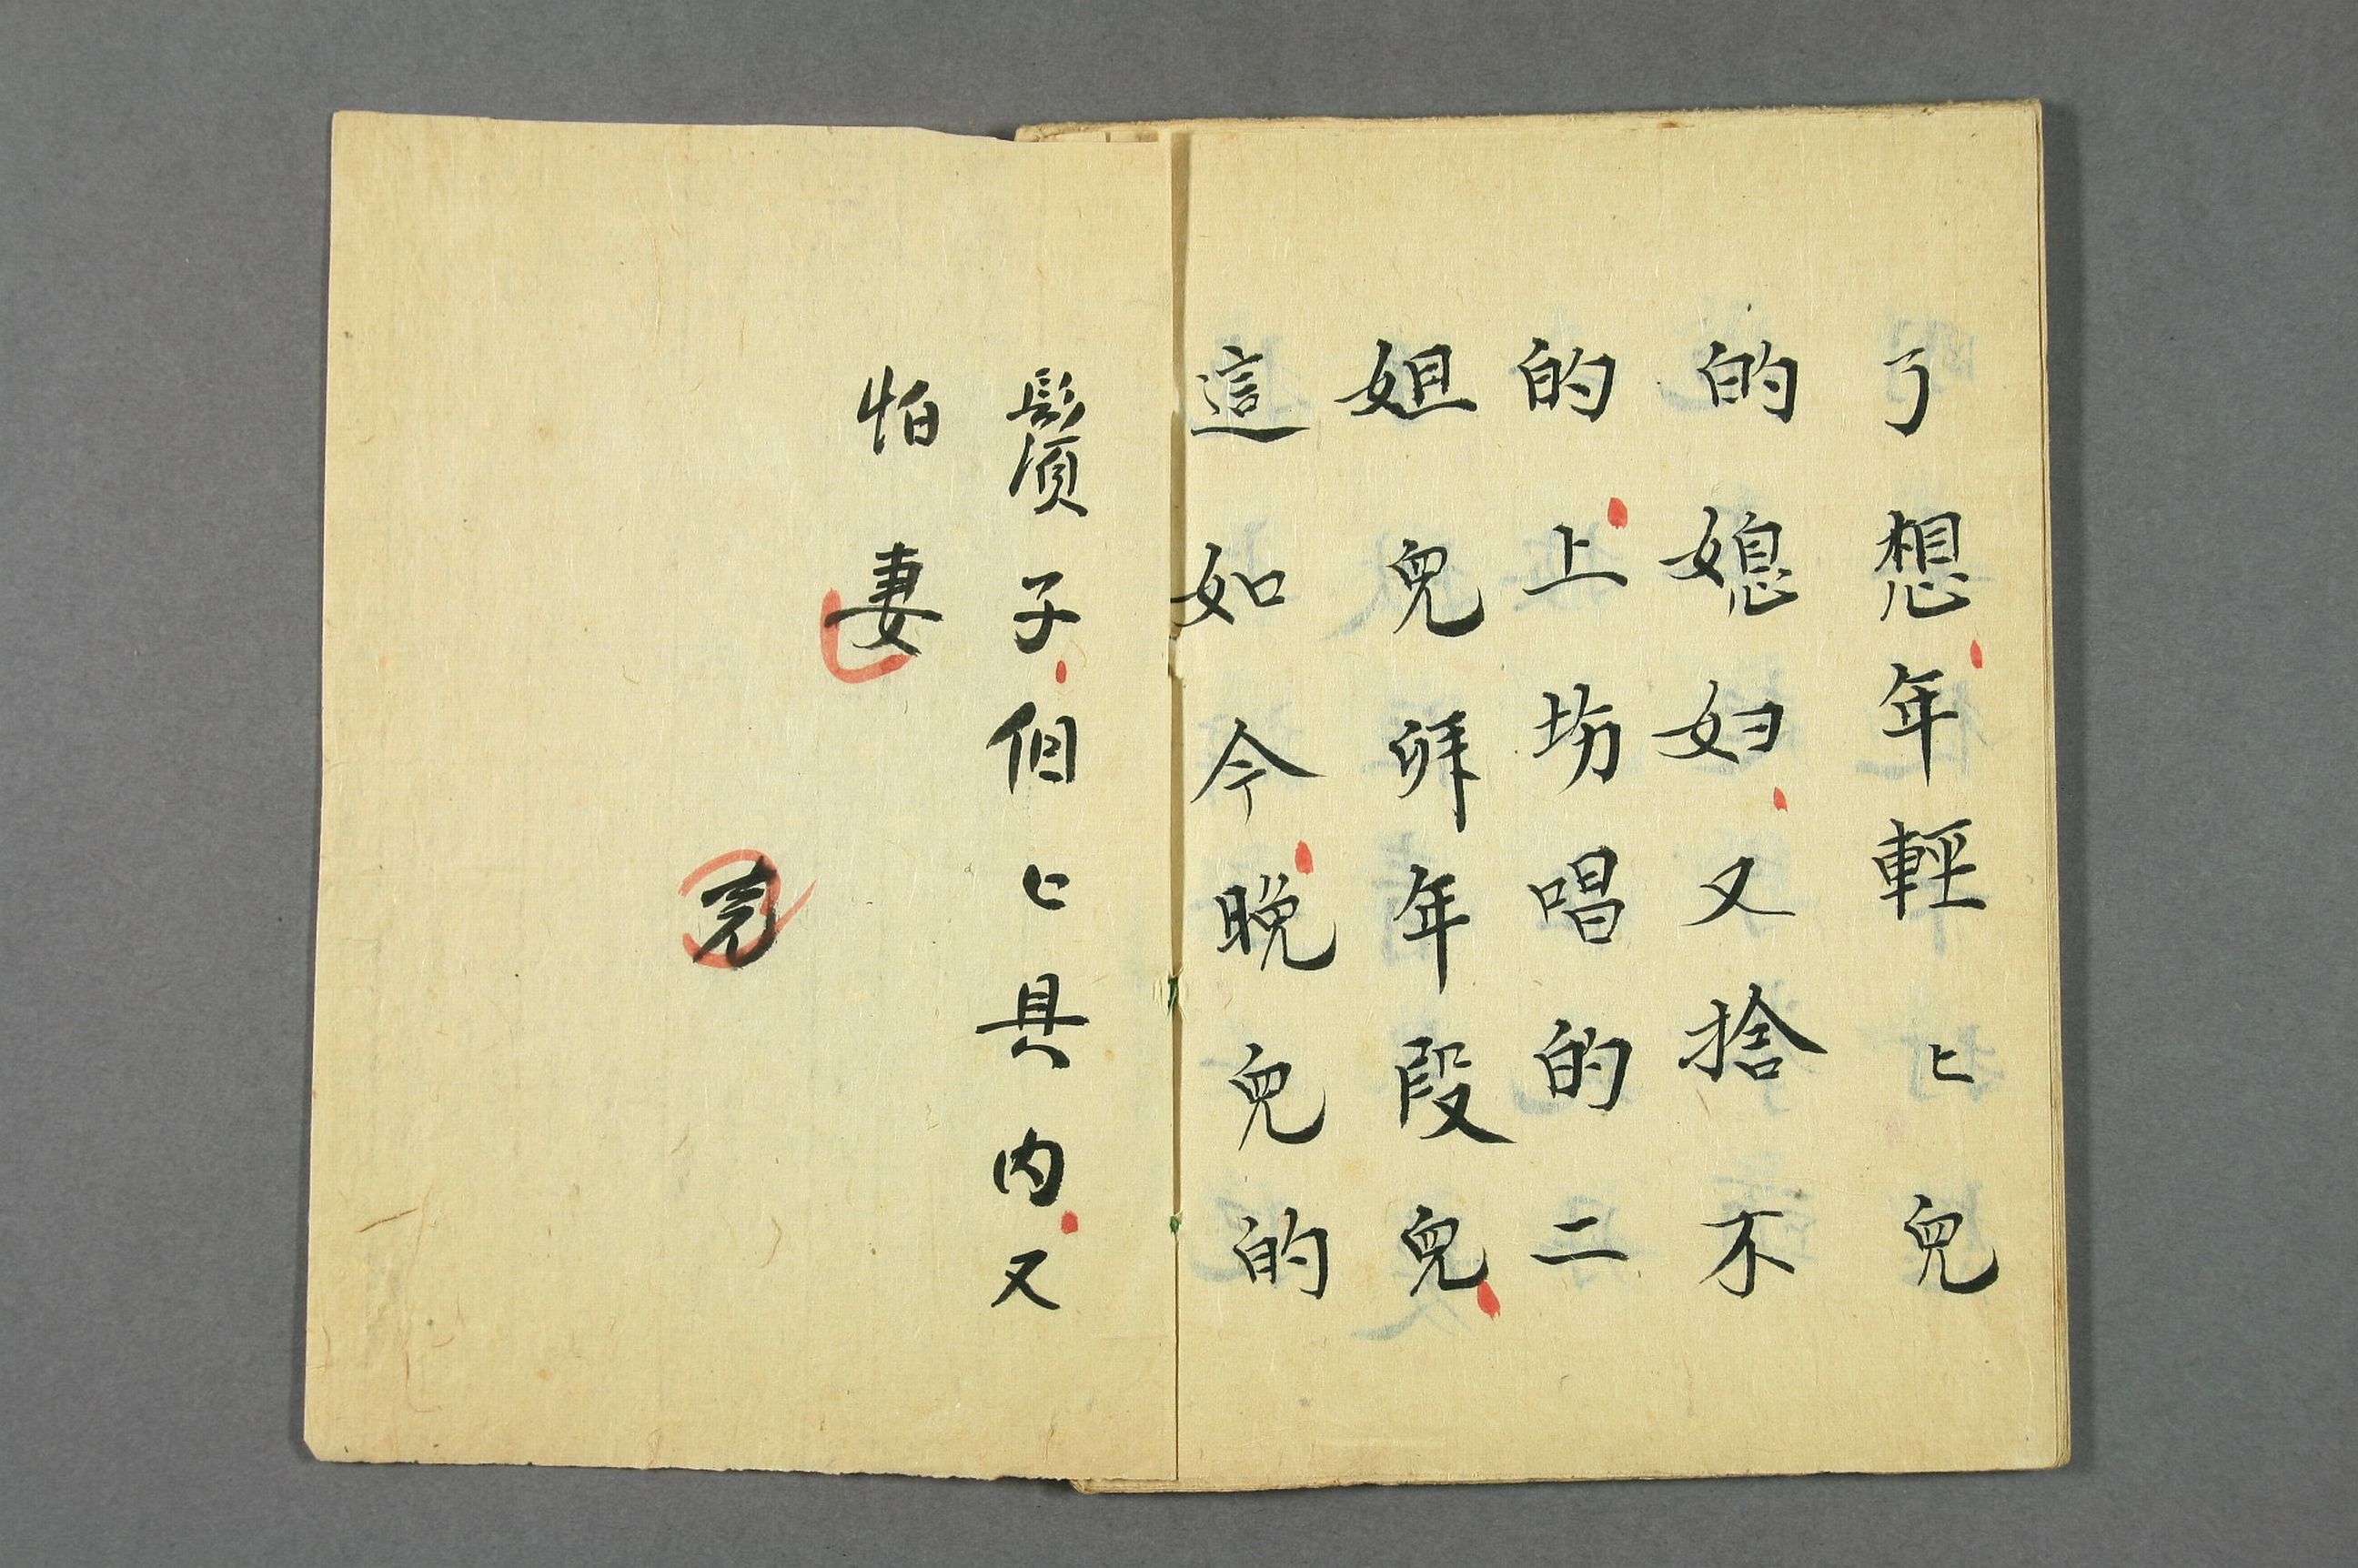 了想年輕〻兒
的媳妇又捨不
的上坊唱的二
姐兒拜年段兒
這如今晚兒的
鬚子個〻具内又
怕妻
完